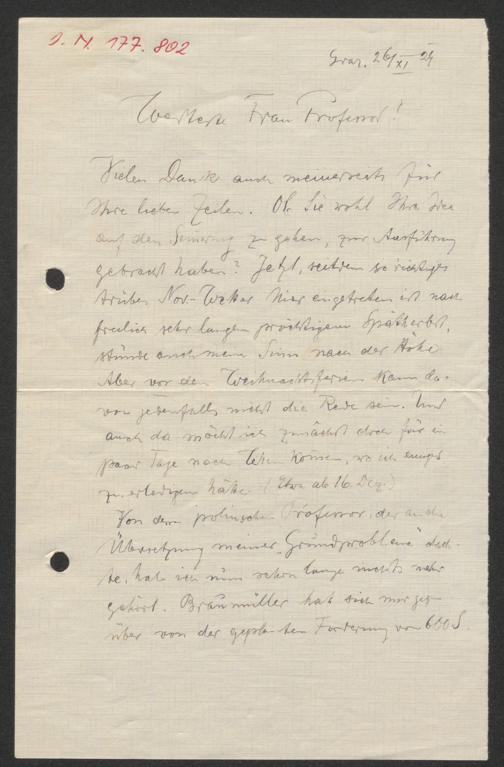 J. N. 177.802
Graz, 26/XI 29
Werteste Frau Professor!
Vielen Dank auch meinerseits für
Ihre lieben Zeilen. Ob Sie wohl Ihre Idee
auf den Semering zu gehen, zur Ausführung
gebracht haben? Jetzt, seitdem so richtiges
trübes Nov.-Wetter hier eingetreten ist nach
freilich sehr langem prächtigem Spätherbst,
stünde auch mein Sinn nach der Höhe
Aber vor den Weihnachtsferien kann da-
von jedenfalls nicht die Rede sein. Und
auch da möcht ich zunächst doch für ein
paar Tage nach Wien kommen, wo ich einiges
zu erledigen hätte (Etwa ab 16. Dez.)
Von dem polnischen Professor, der an die
Übersetzung meiner "Grundprobleme" dach-
te, hab ich nun schon lange nichts mehr
gehört. Braumüller hat sich mir gegen-
über von der geplanten Forderung von 600 S.